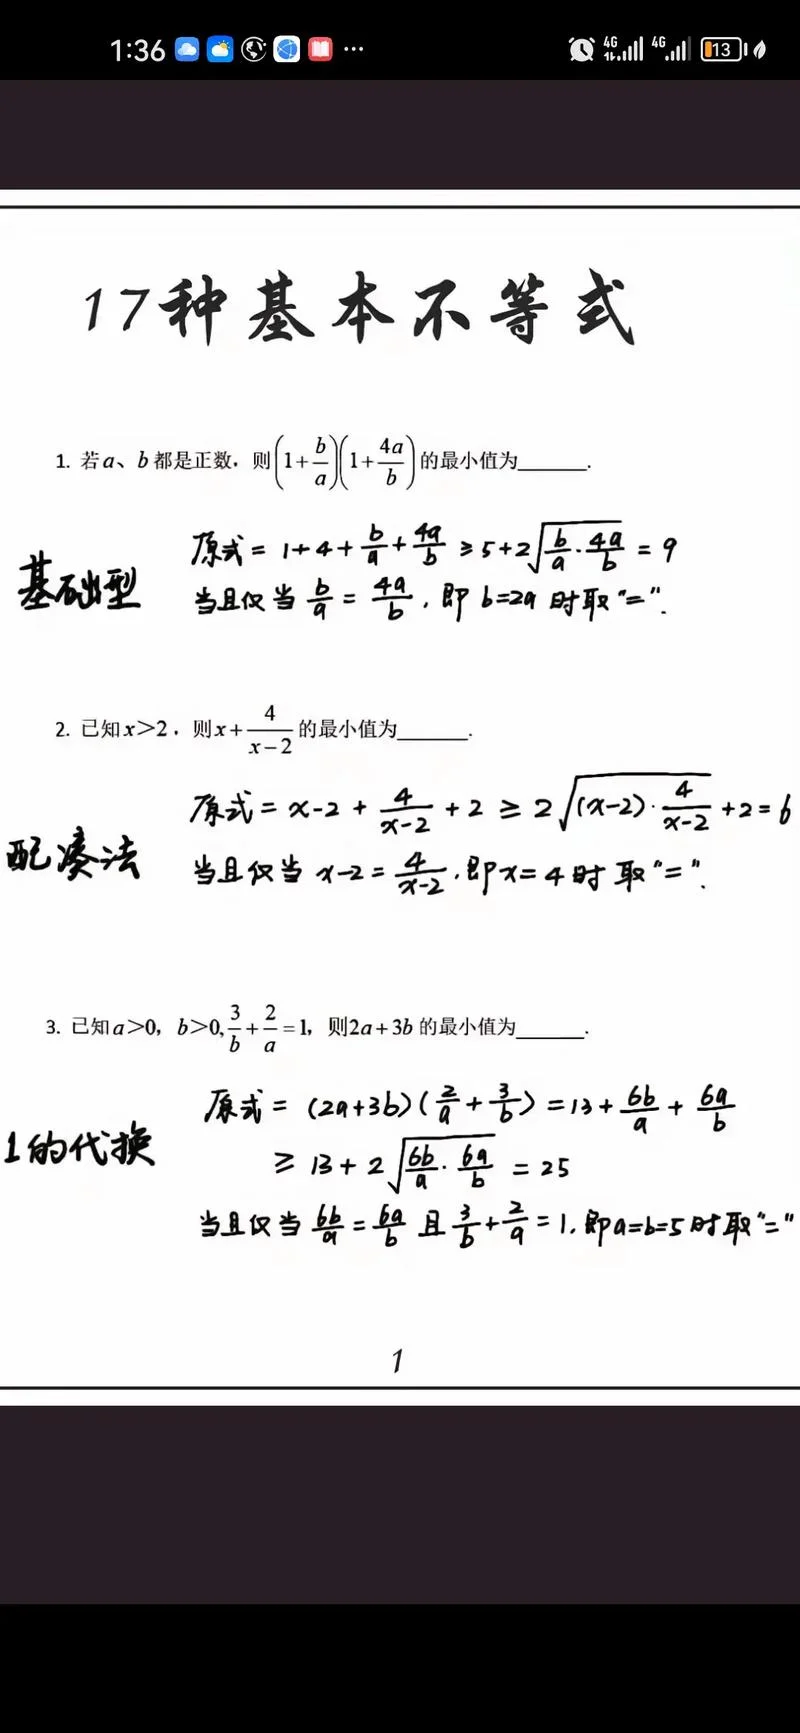 1:36 ··· 4G 4G 13
17种基本不等式
1. 若a、b都是正数，则(1+b/a)(1+4a/b)的最小值为______.
基础型
原式=1+4+b/a+4a/b≥5+2√(b/a·4a/b)=9
当且仅当b/a=4a/b，即b=2a时取“=”.
2. 已知x>2，则x+4/(x-2)的最小值为______.
配凑法
原式=x-2+4/(x-2)+2≥2√((x-2)·4/(x-2))+2=6
当且仅当x-2=4/(x-2)，即x=4时取“=”.
3. 已知a>0，b>0,3/b+2/a=1，则2a+3b的最小值为______.
1的代换
原式=(2a+3b)(2/a+3/b)=13+6b/a+6a/b
≥13+2√(6b/a·6a/b)=25
当且仅当6b/a=6a/b且3/b+2/a=1，即a=b=5时取“=”
1